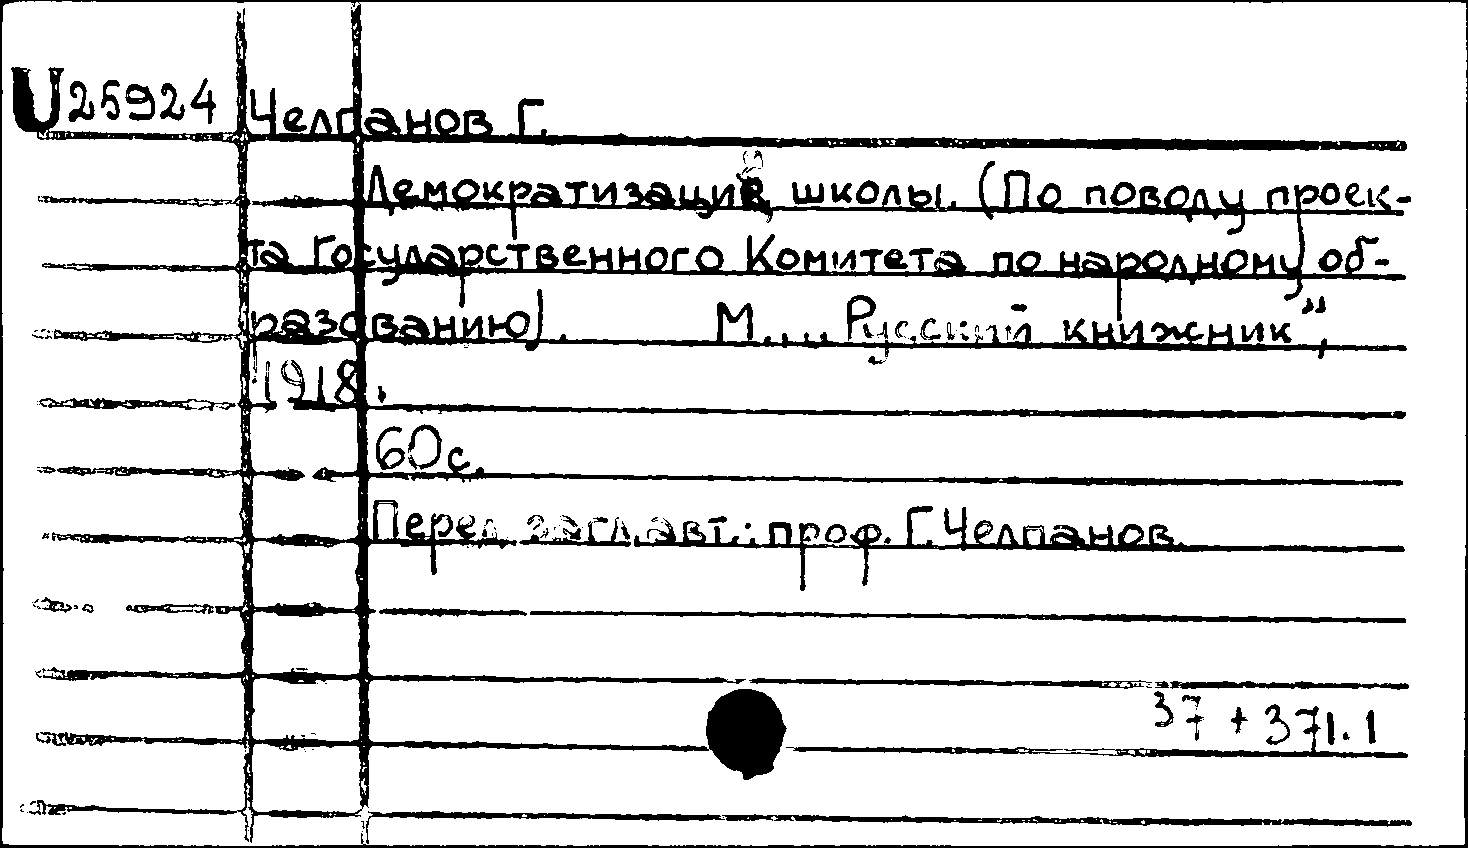 U25924 Челпанов Г.
Демократизация школы. (По поводу проек-
та Государственного Комитета по народному об-
разованию). М., „Русский книжник",
1918.
60с.
Перед загл. авт.: проф. Г. Челпанов.
37 + 371.1